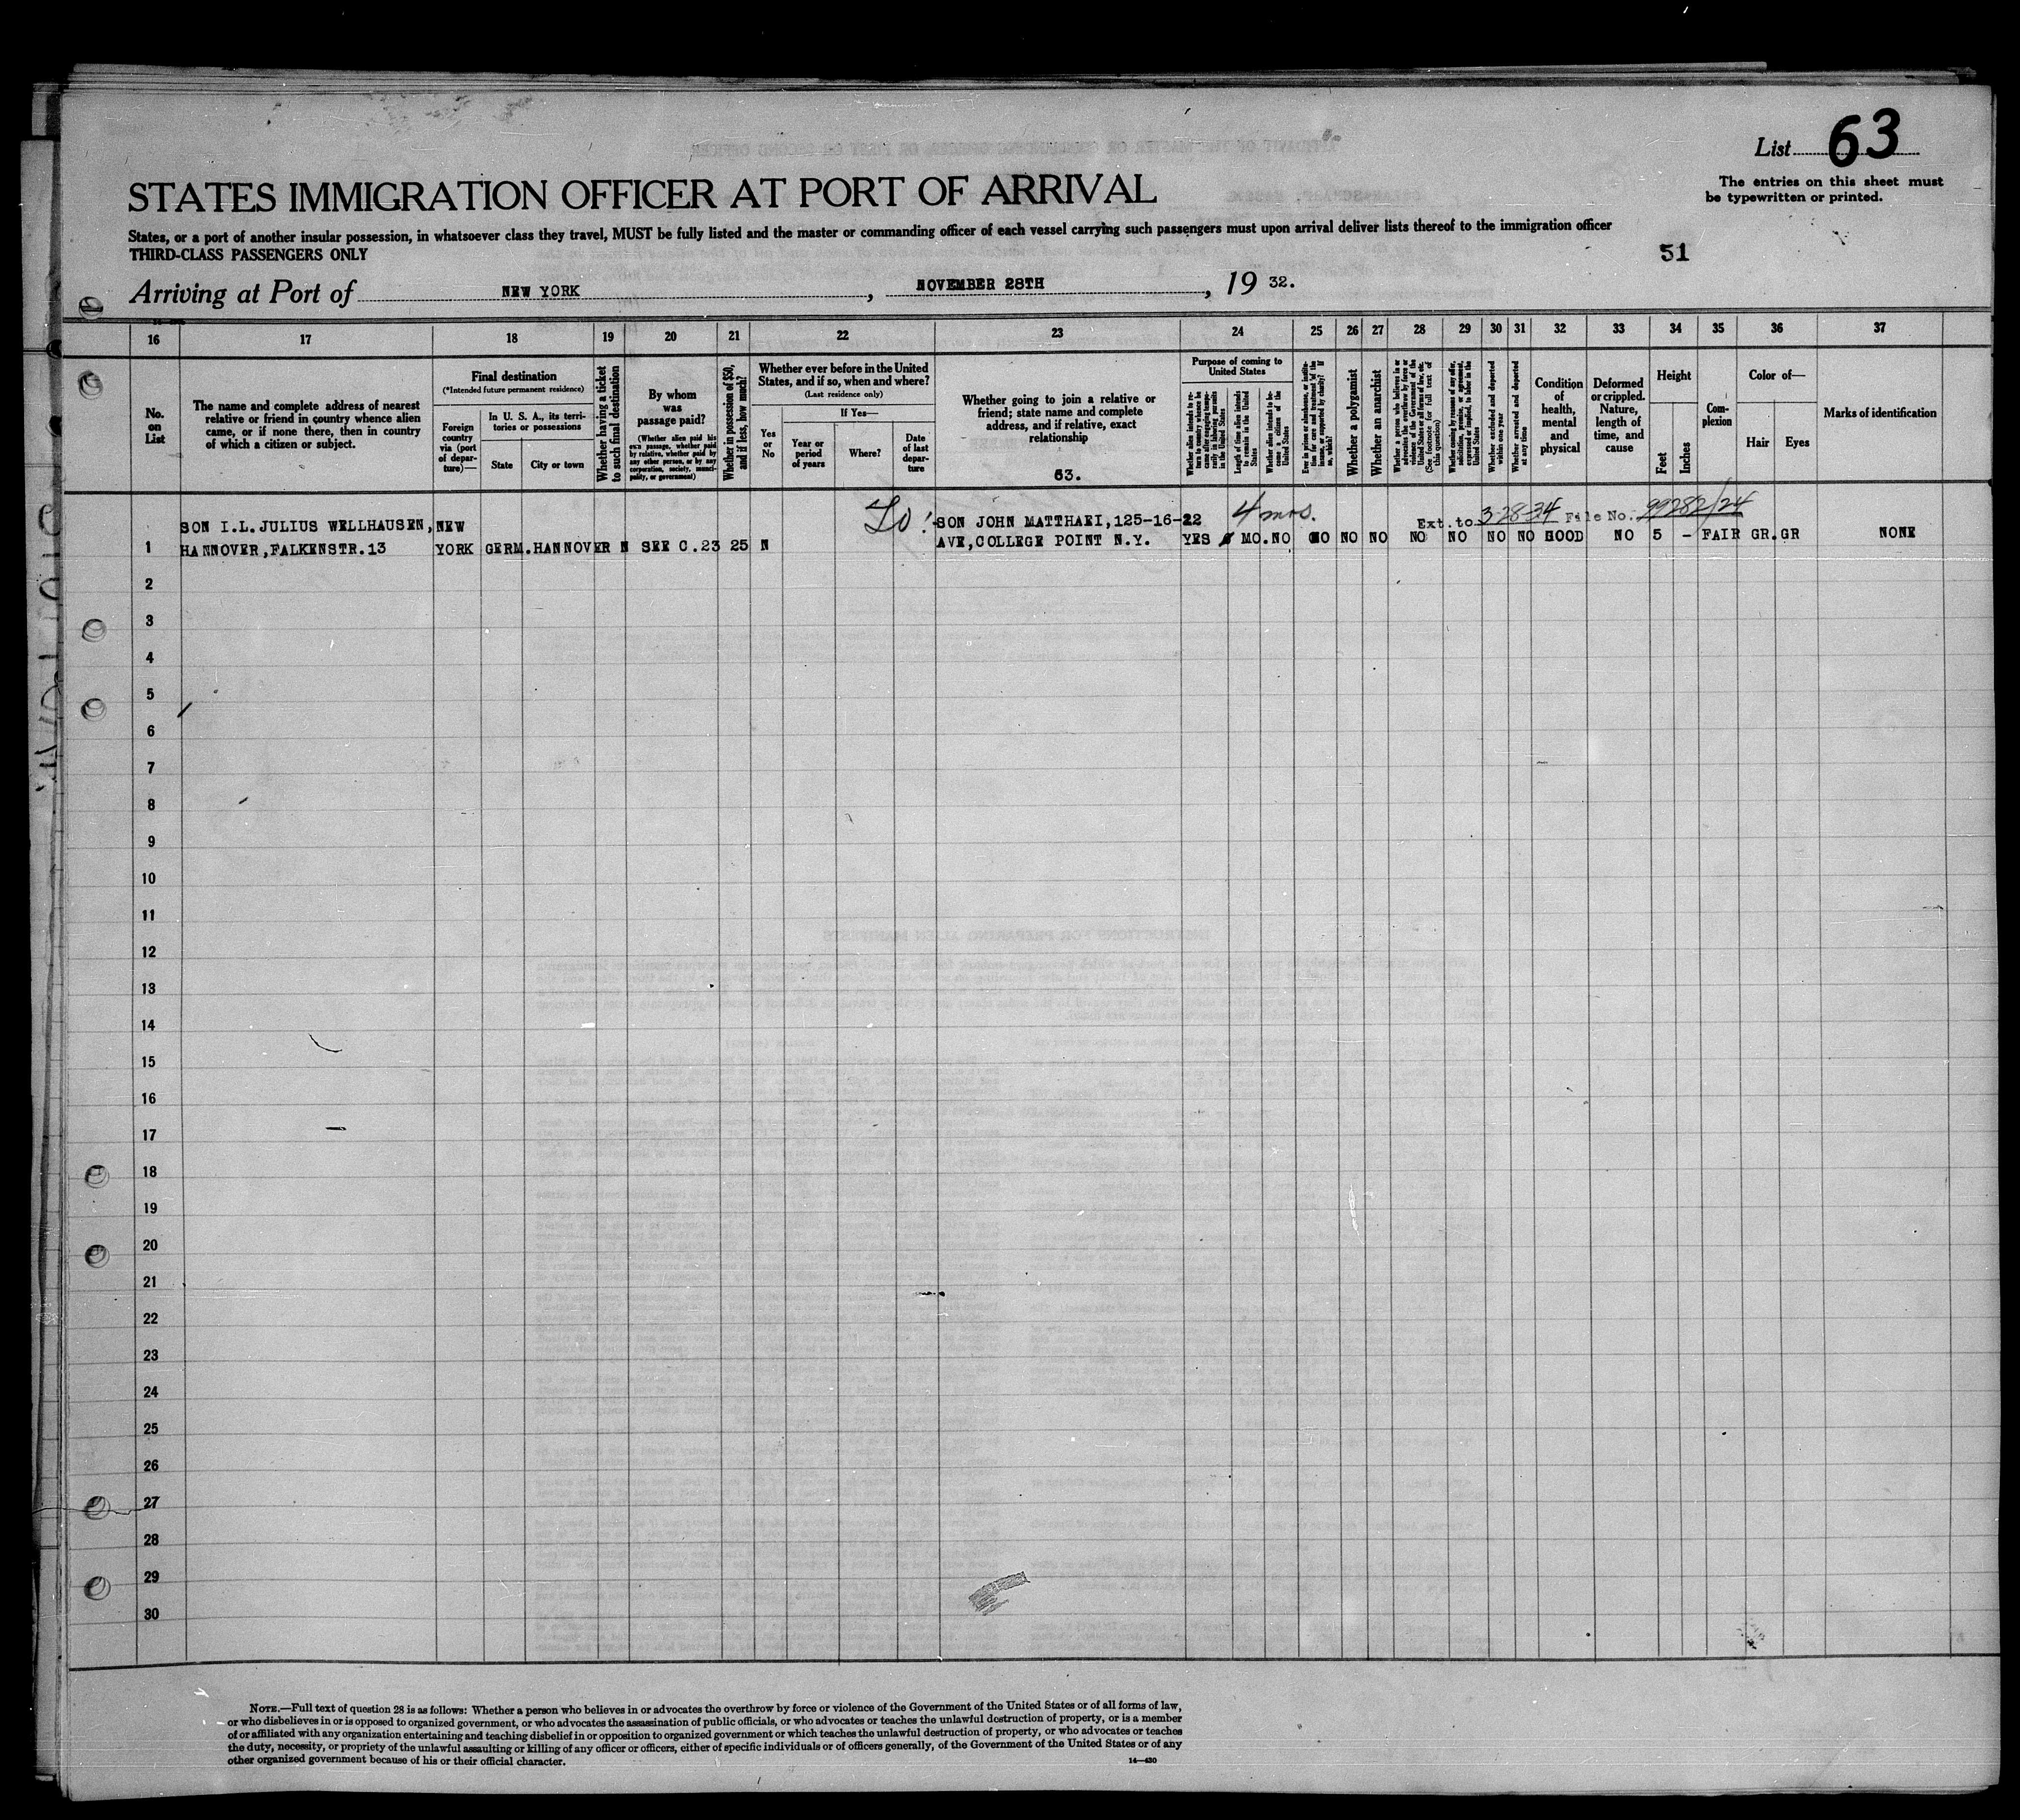 List 63
The entries on this sheet must
be typewritten or printed.
STATES IMMIGRATION OFFICER AT PORT OF ARRIVAL
States, or a port of another insular possession, in whatsoever class they travel, MUST be fully listed and the master or commanding officer of each vessel carrying such passengers must upon arrival deliver lists thereof to the immigration officer
THIRD-CLASS PASSENGERS ONLY
51
Arriving at Port of NEW YORK, NOVEMBER 28TH, 19 32.
16 17 18 19 20 21 22 23 24 25 26 27 28 29 30 31 32 33 34 35 36 37
No.
on
List
The name and complete address of nearest
relative or friend in country whence alien
came, or if none there, then in country
of which a citizen or subject.
Final destination
(*Intended future permanent residence)
Foreign
country
via (port
of depar-
ture)—
In U. S. A., its terri-
tories or possessions
State
City or town
Whether having a ticket
to such final destination
By whom
was
passage paid?
(Whether alien paid his
own passage, whether paid
by relative, whether paid by
any other person, or by any
corporation, society, munici-
pality, or government)
Whether in possession of $50,
and if less, how much?
Whether ever before in the United
States, and if so, when and where?
(Last residence only)
Yes
or
No
If Yes—
Year or
period
of years
Where?
Date
of last
depar-
ture
Whether going to join a relative or
friend; state name and complete
address, and if relative, exact
relationship
63.
Purpose of coming to
United States
Whether alien intends to re-
turn to country whence he
came after engaging tempo-
rarily in laboring pursuits
in the United States
Length of time alien intends
to remain in the United
States
Whether alien intends to be-
come a citizen of the
United States
Ever in prison or almshouse, or institu-
tion for care and treatment of the
insane, or supported by charity? If
so, which?
Whether a polygamist
Whether an anarchist
Whether a person who believes in or
advocates the overthrow by force or
violence of the Government of the
United States or all forms of law, etc.
(See footnote for full text of
this question)
Whether coming by reason of any offer,
solicitation, promise, or agreement,
expressed or implied, to labor in the
United States
Whether excluded and deported
within one year
Whether arrested and deported
at any time
Condition
of
health,
mental
and
physical
Deformed
or crippled.
Nature,
length of
time, and
cause
Height
Feet
Inches
Com-
plexion
Color of—
Hair
Eyes
Marks of identification
To! 4 mos. Ext. to 3-28-34 File No. 99282/24
SON I.L.JULIUS WELLHAUSEN, NEW SON JOHN MATTHAEI,125-16-22
1 HANNOVER,FALKENSTR.13 YORK GERM.HANNOVER N SEE C.23 25 N AVE,COLLEGE POINT N.Y. YES MO.NO NO NO NO NO NO NO NO GOOD NO 5 - FAIR GR.GR NONE
2
3
4
5
6
7
8
9
10
11
12
13
14
15
16
17
18
19
20
21
22
23
24
25
26
27
28
29
30
NOTE.—Full text of question 28 is as follows: Whether a person who believes in or advocates the overthrow by force or violence of the Government of the United States or of all forms of law,
or who disbelieves in or is opposed to organized government, or who advocates the assassination of public officials, or who advocates or teaches the unlawful destruction of property, or is a member
of or affiliated with any organization entertaining and teaching disbelief in or opposition to organized government or which teaches the unlawful destruction of property, or who advocates or teaches
the duty, necessity, or propriety of the unlawful assaulting or killing of any officer or officers, either of specific individuals or of officers generally, of the Government of the United States or of any
other organized government because of his or their official character.
14—430